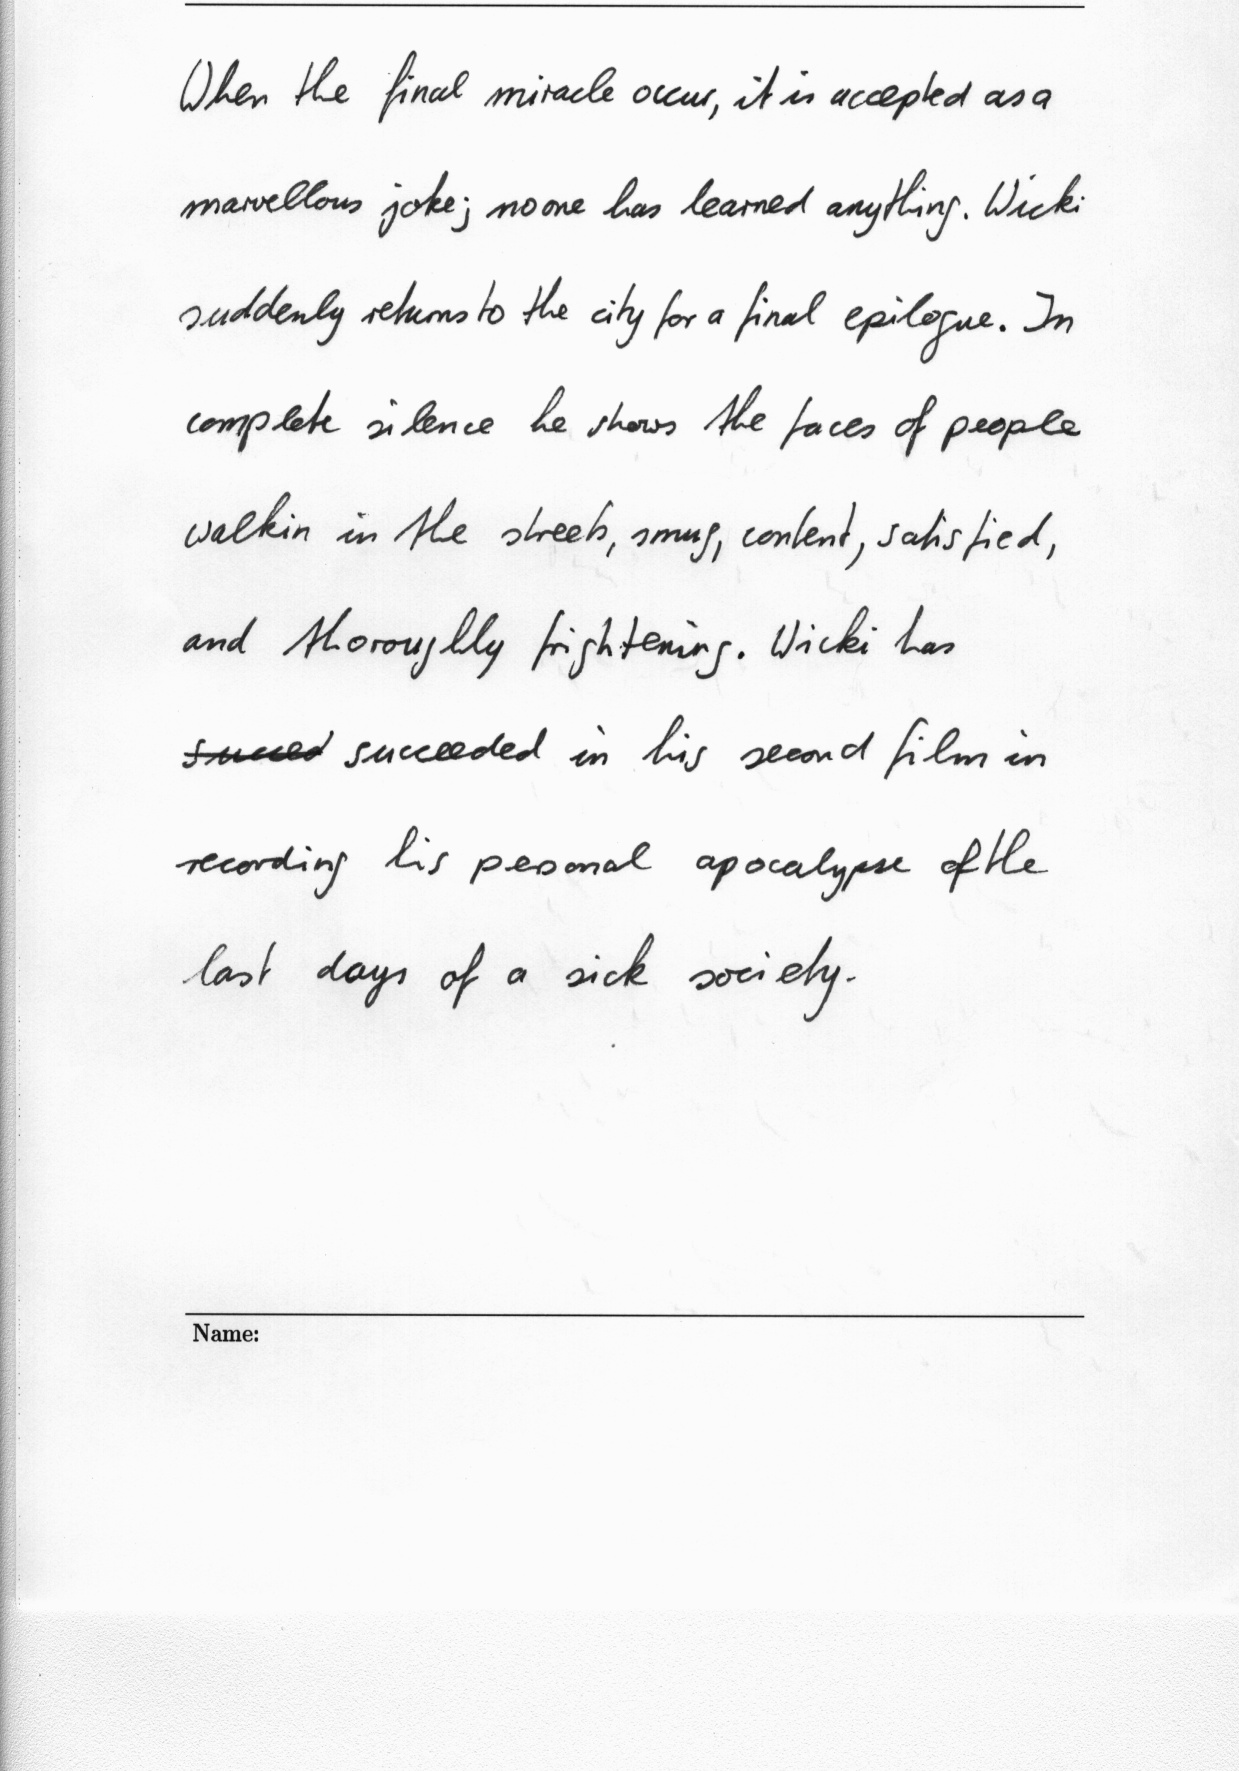 When the final miracle occurs, it is accepted as a
marvellous joke; no one has learned anything. Wicki
suddenly returns to the city for a final epilogue. In
complete silence he shows the faces of people
walkin in the streets, smug, content, satisfied,
and thoroughly frightening. Wicki has
succed succeeded in his second film in
recording his personal apocalypse of the
last days of a sick society.
Name: